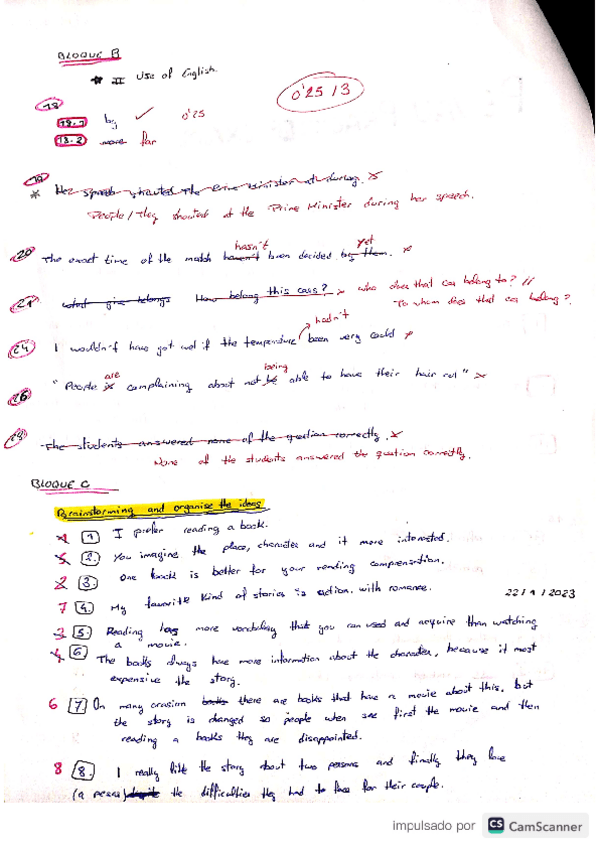 BLOQUE B
* II Use of English.
0'25 / 3
18
18.1 by ✓ 0'25
18.2 more far
19
* Her speech shouted the Prime Minister at during. x
People / they shouted at the Prime Minister during her speech.
hasn't yet
20 The exact time of the match haven't been decided by them. x
21 what give belongs How belong this cass? x who does that car belong to? //
To whom does that car belong?
hadn't
24 I wouldn't have got wet if the temperature been very could x
are being
26 "People is complaining about not be able to have their hair cut" x
29 The students answered none of the question correctly. x
None of the students answered the question correctly.
BLOQUE C
Brainstorming and organise the ideas
1 1. I prefer reading a book.
5 2. You imagine the place, character and it more interested.
2 3. One book is better for your reading compensition.
7 4. My favorite kind of stories is action. with romance.
22/1/2023
3 5. Reading has more vocabulary that you can used and acquire than watching
a movie.
4 6 The books always have more information about the character, because it most
expensive the story.
6 7 On many ocasion books there are books that have a movie about this, but
the story is changed so people when see first the movie and then
reading a books they are disappointed.
8 8. I really like the story about two persons and finally they love
(a pesar) despite the difficulties they had to face for their couple.
impulsado por CS CamScanner